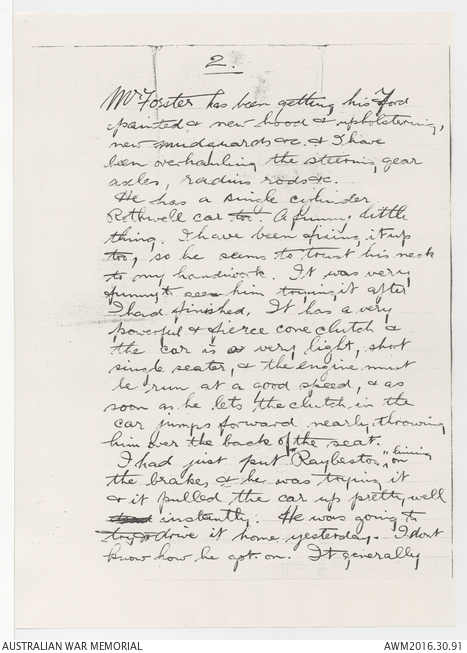 2.
Mr Forster has been getting his Ford
painted & new hood & upholstering,
new mudguards &c. & I have
been overhauling the steering gear
axles, radius rods &c.
He has a single cylinder
Rothwell car too. A funny little
thing. I have been fixing it up
too, so he seems to trust his neck
to my handiwork. It was very
funny to seen him trying it after
I had finished. It has a very
powerful & fierce cone clutch &
the car is a very light, short
single seater, & the engine must
be run at a good speed, & as
soon as he lets the clutch in the
car jumps forward nearly throwing
him over the back of the seat.
I had just put "Raybestos" lining on
the brakes, & he was trying it
& it pulled the car up pretty well
instantly. He was going to
try to drive it home yesterday. I dont
know how he got on. It generally
AUSTRALIAN WAR MEMORIAL
AWM2016.30.91